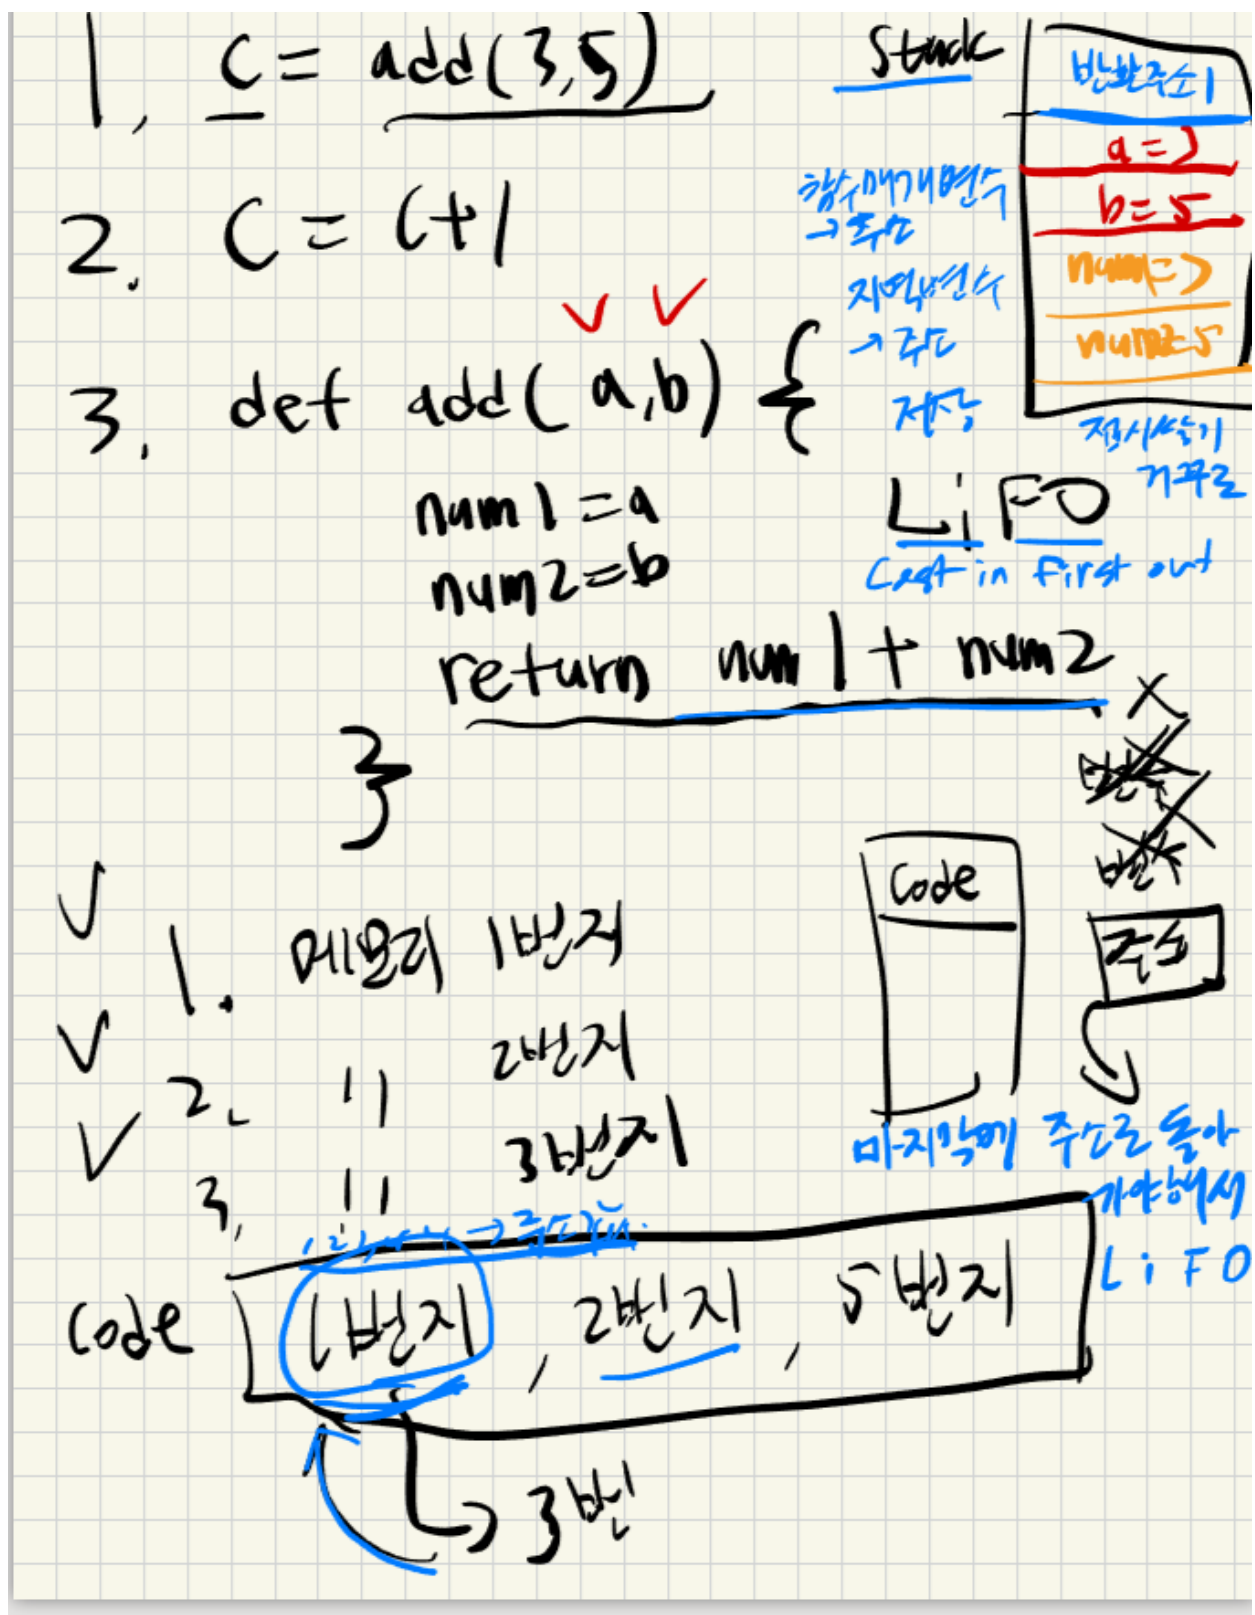 1, C = add(3,5)
2. C = C+1
3. def add( a,b) {
num1 = a
num2 = b
return num1 + num2
}
Stack
반환주소1
a=3
b=5
num1=3
num2=5
함수매개변수
→ 주소
지역변수
→ 주소
저장
접시쌓기
거꾸로
LiFO
Last in First out
1. 메모리 1번지
2. 〃 2번지
3. 〃 3번지
Code
주소
마지막에 주소로 돌아
가야해서
LiFO
Code
1번지, 2번지, 5번지
3번